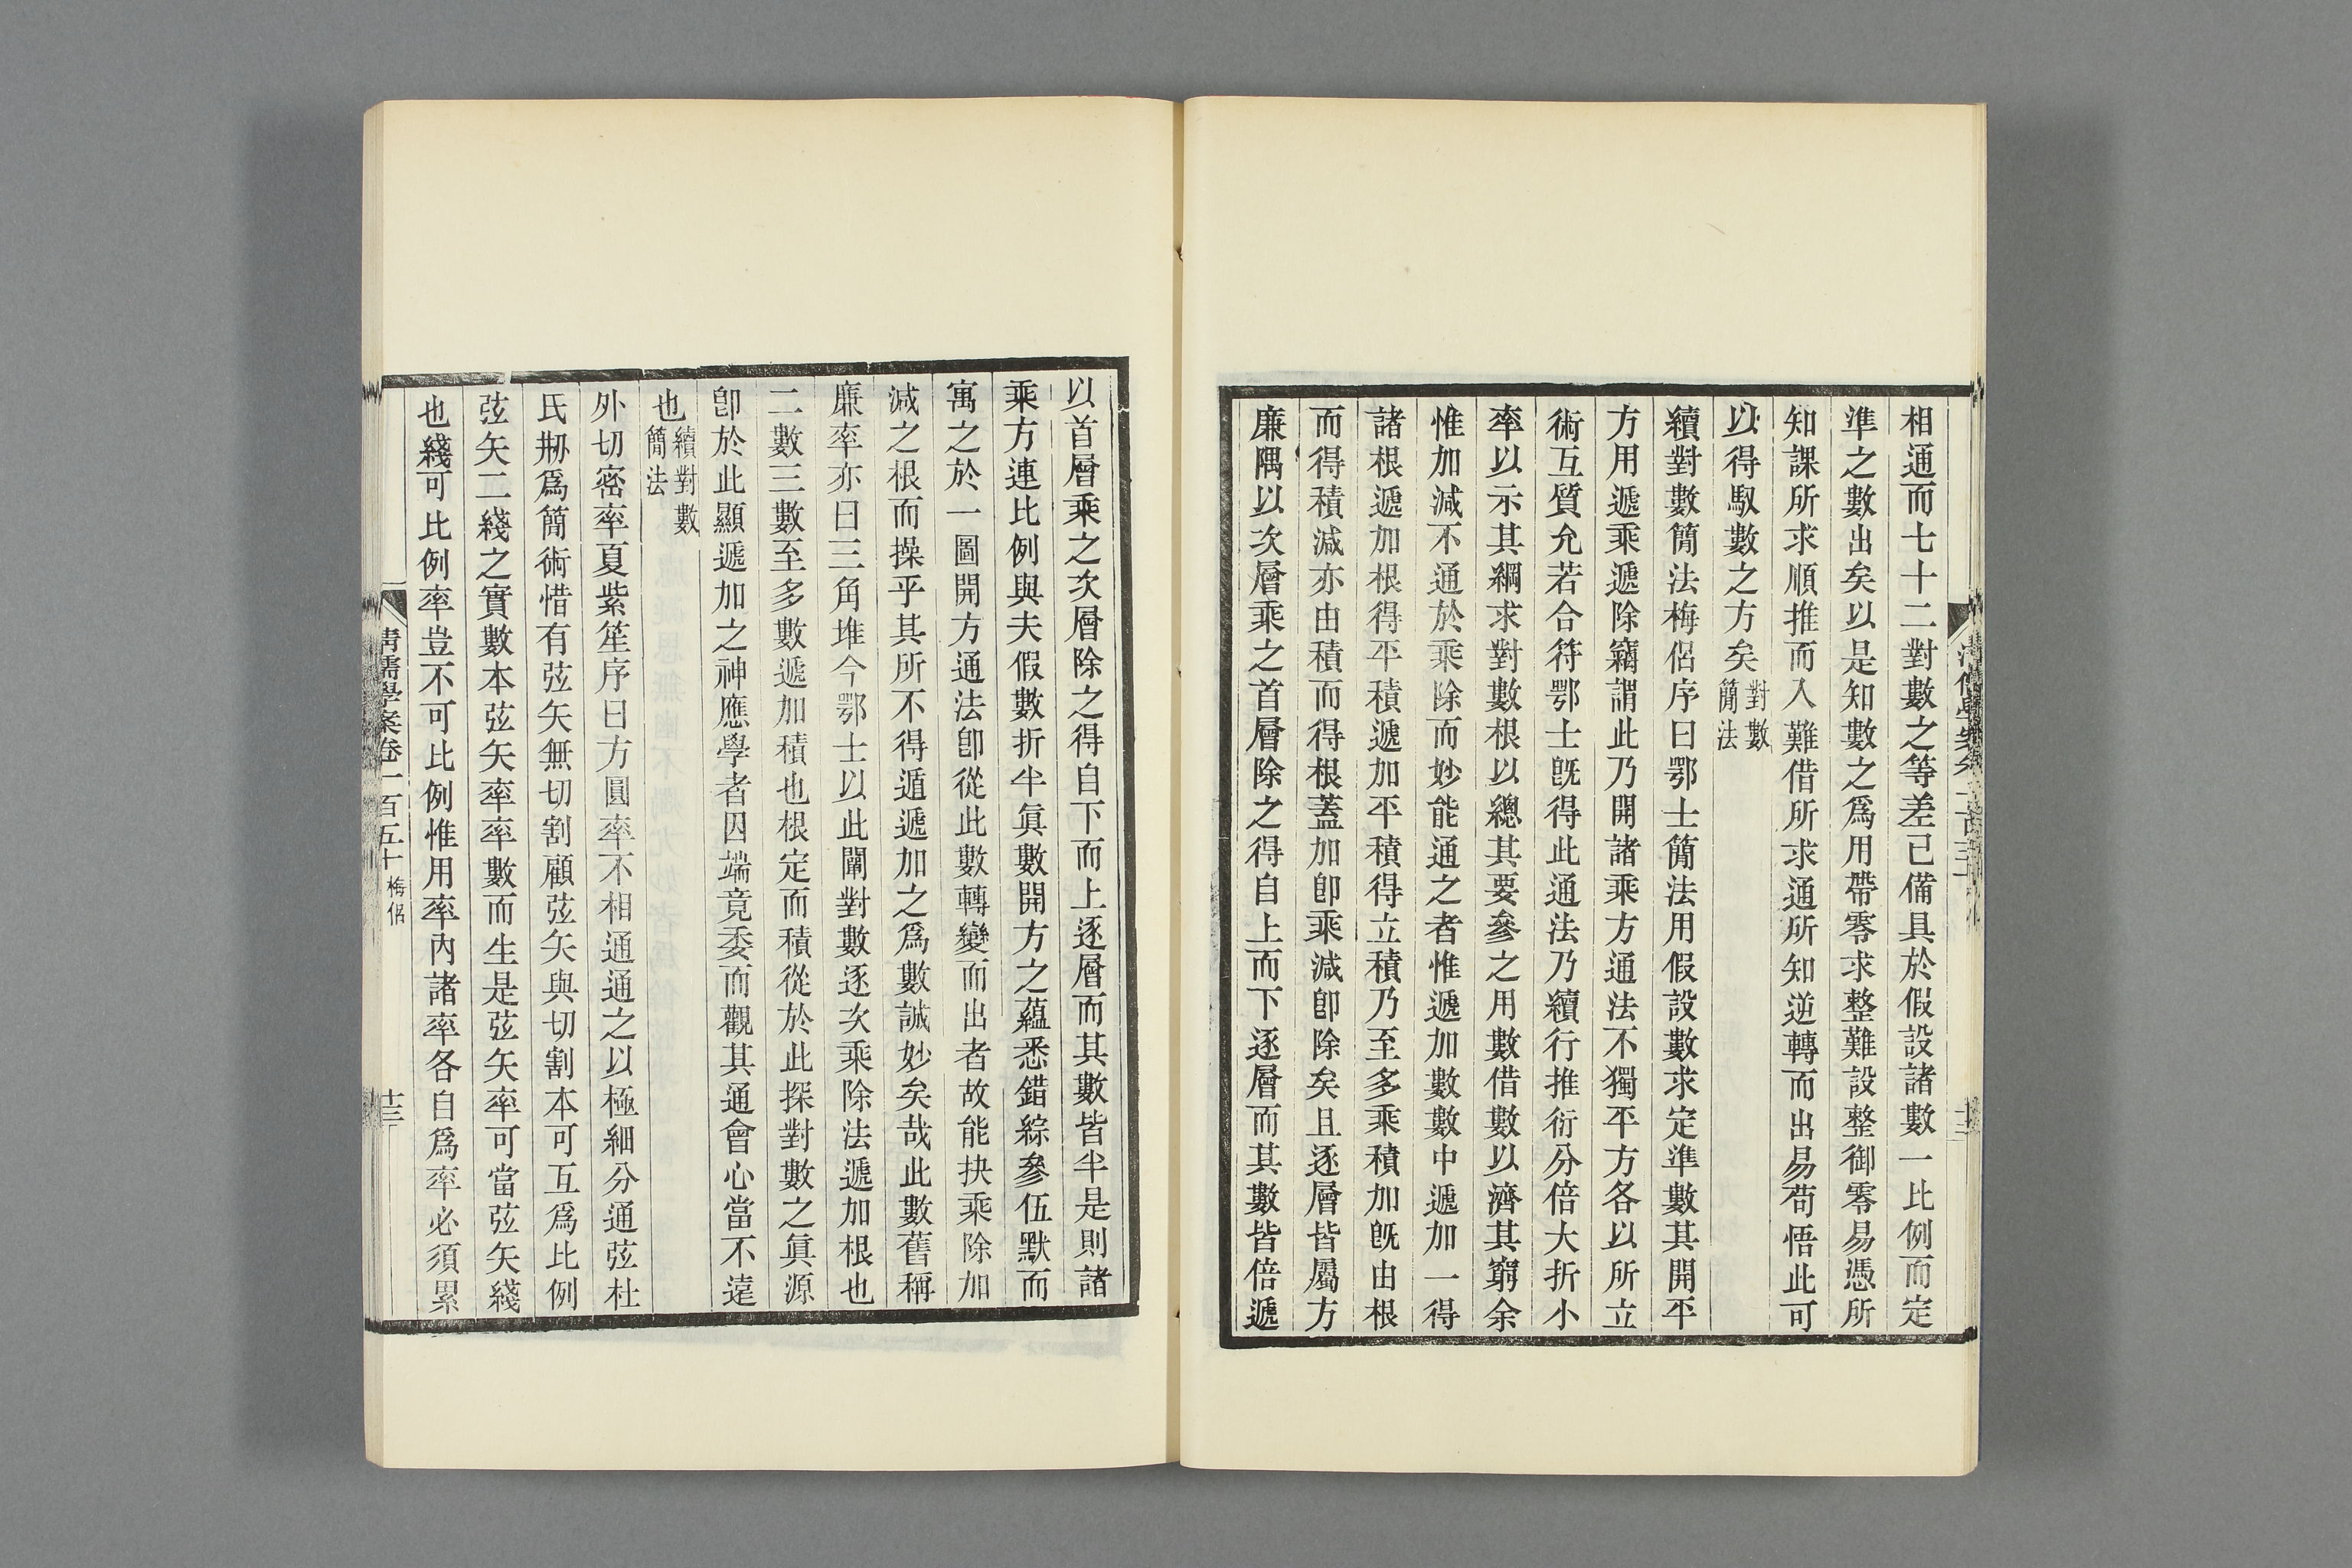 相通而七十二對數之等差已備具於假設諸數一比例而定
準之數出矣以是知數之爲用帶零求整難設整御零易憑所
知課所求順推而入難借所求通所知逆轉而出易苟悟此可
以得馭數之方矣對數簡法
續對數簡法梅侶序曰鄂士簡法用假設數求定準數其開平
方用遞乘遞除竊謂此乃開諸乘方通法不獨平方各以所立
術互質允若合符鄂士旣得此通法乃續行推衍分倍大折小
率以示其綱求對數根以總其要參之用數借數以濟其窮余
惟加減不通於乘除而妙能通之者惟遞加數數中遞加一得
諸根遞加根得平積遞加平積得立積乃至多乘積加旣由根
而得積減亦由積而得根蓋加卽乘減卽除矣且逐層皆屬方
廉隅以次層乘之首層除之得自上而下逐層而其數皆倍遞
以首層乘之次層除之得自下而上逐層而其數皆半是則諸
乘方連比例與夫假數折半眞數開方之蘊悉錯綜參伍默而
寓之於一圖開方通法卽從此數轉變而出者故能抉乘除加
減之根而操乎其所不得遁遞加之爲數誠妙矣哉此數舊稱
廉率亦曰三角堆今鄂士以此闡對數逐次乘除法遞加根也
二數三數至多數遞加積也根定而積從於此探對數之眞源
卽於此顯遞加之神應學者因端竟委而觀其通會心當不遠
也續對數簡法
外切密率夏紫笙序曰方圓率不相通通之以極細分通弦杜
氏剏爲簡術惜有弦矢無切割顧弦矢與切割本可互爲比例
弦矢二綫之實數本弦矢率率數而生是弦矢率可當弦矢綫
也綫可比例率豈不可比例惟用率內諸率各自爲率必須累
清儒學案卷一百五十 梅侶
十三